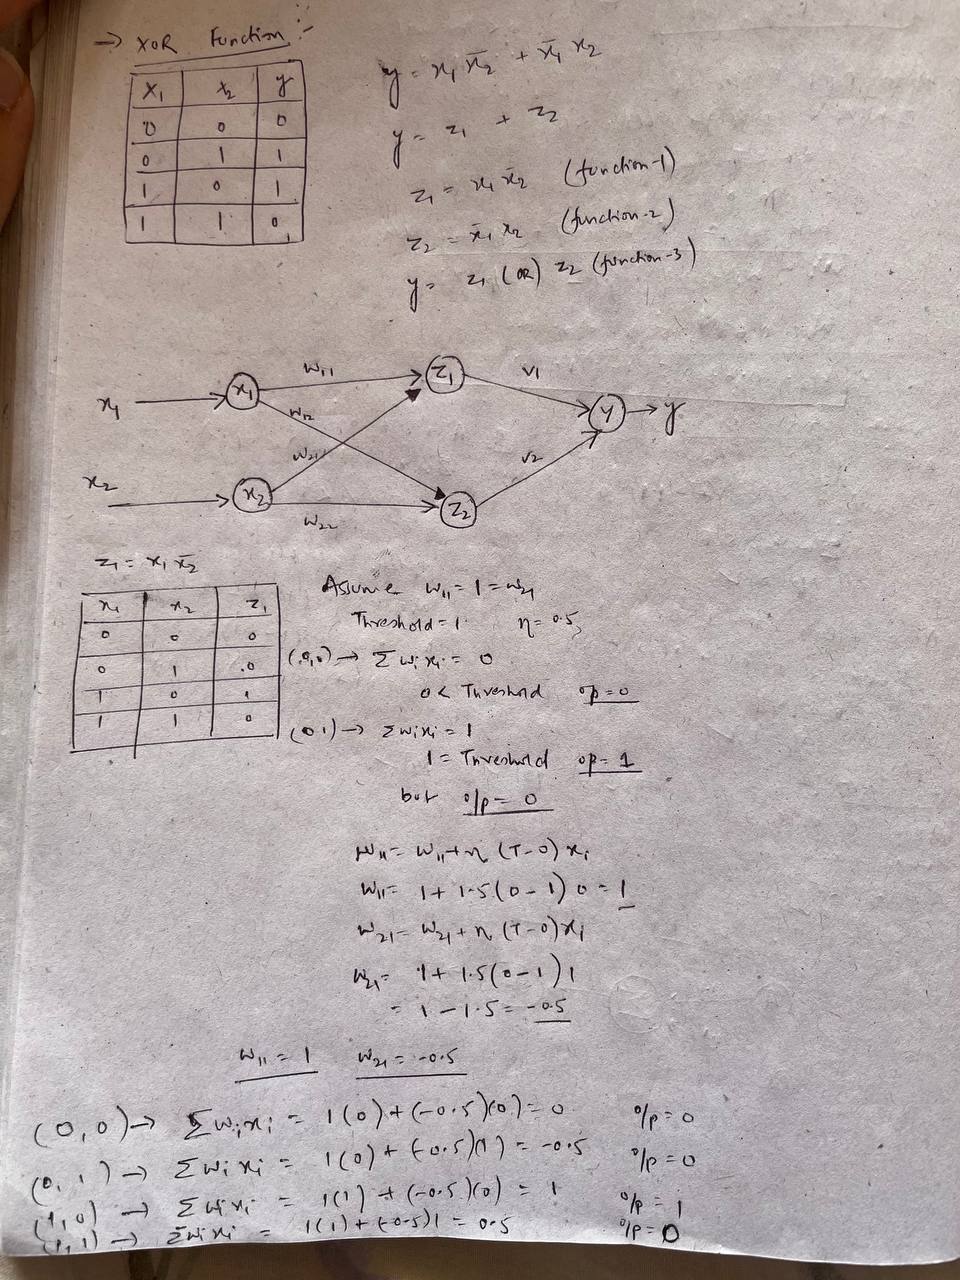 → XOR Function :-
X₁ X₂ y
0 0 0
0 1 1
1 0 1
1 1 0
y = x₁ x̄₂ + x̄₁ x₂
y = z₁ + z₂
z₁ = x₁ x̄₂ (function-1)
z₂ = x̄₁ x₂ (function-2)
y = z₁ (OR) z₂ (function-3)
x₁ x₁ w₁₁ z₁ v₁
w₁₂ Y → y
w₂₁ v₂
x₂ x₂ w₂₂ z₂
z₁ = x₁ x̄₂
x₁ x₂ z₁
0 0 0
0 1 0
1 0 1
1 1 0
Assume w₁₁ = 1 = w₂₁
Threshold = 1 η = 0.5
(0,0) → Σ wᵢ xᵢ = 0
0 < Threshold op = 0
(0 1) → Σ wᵢ xᵢ = 1
1 = Threshold op = 1
but o/p = 0
w₁₁ = w₁₁ + η (T-0) xᵢ
w₁₁ = 1 + 1.5 (0-1) 0 = 1
w₂₁ = w₂₁ + η (T-0) xᵢ
w₂₁ = 1 + 1.5 (0-1) 1
= 1 - 1.5 = -0.5
w₁₁ = 1 w₂₁ = -0.5
(0,0) → Σ wᵢ xᵢ = 1(0) + (-0.5)(0) = 0 o/p = 0
(0,1) → Σ wᵢ xᵢ = 1(0) + (-0.5)(1) = -0.5 o/p = 0
(1,0) → Σ wᵢ xᵢ = 1(1) + (-0.5)(0) = 1 o/p = 1
(1,1) → Σ wᵢ xᵢ = 1(1) + (-0.5)1 = 0.5 o/p = 0